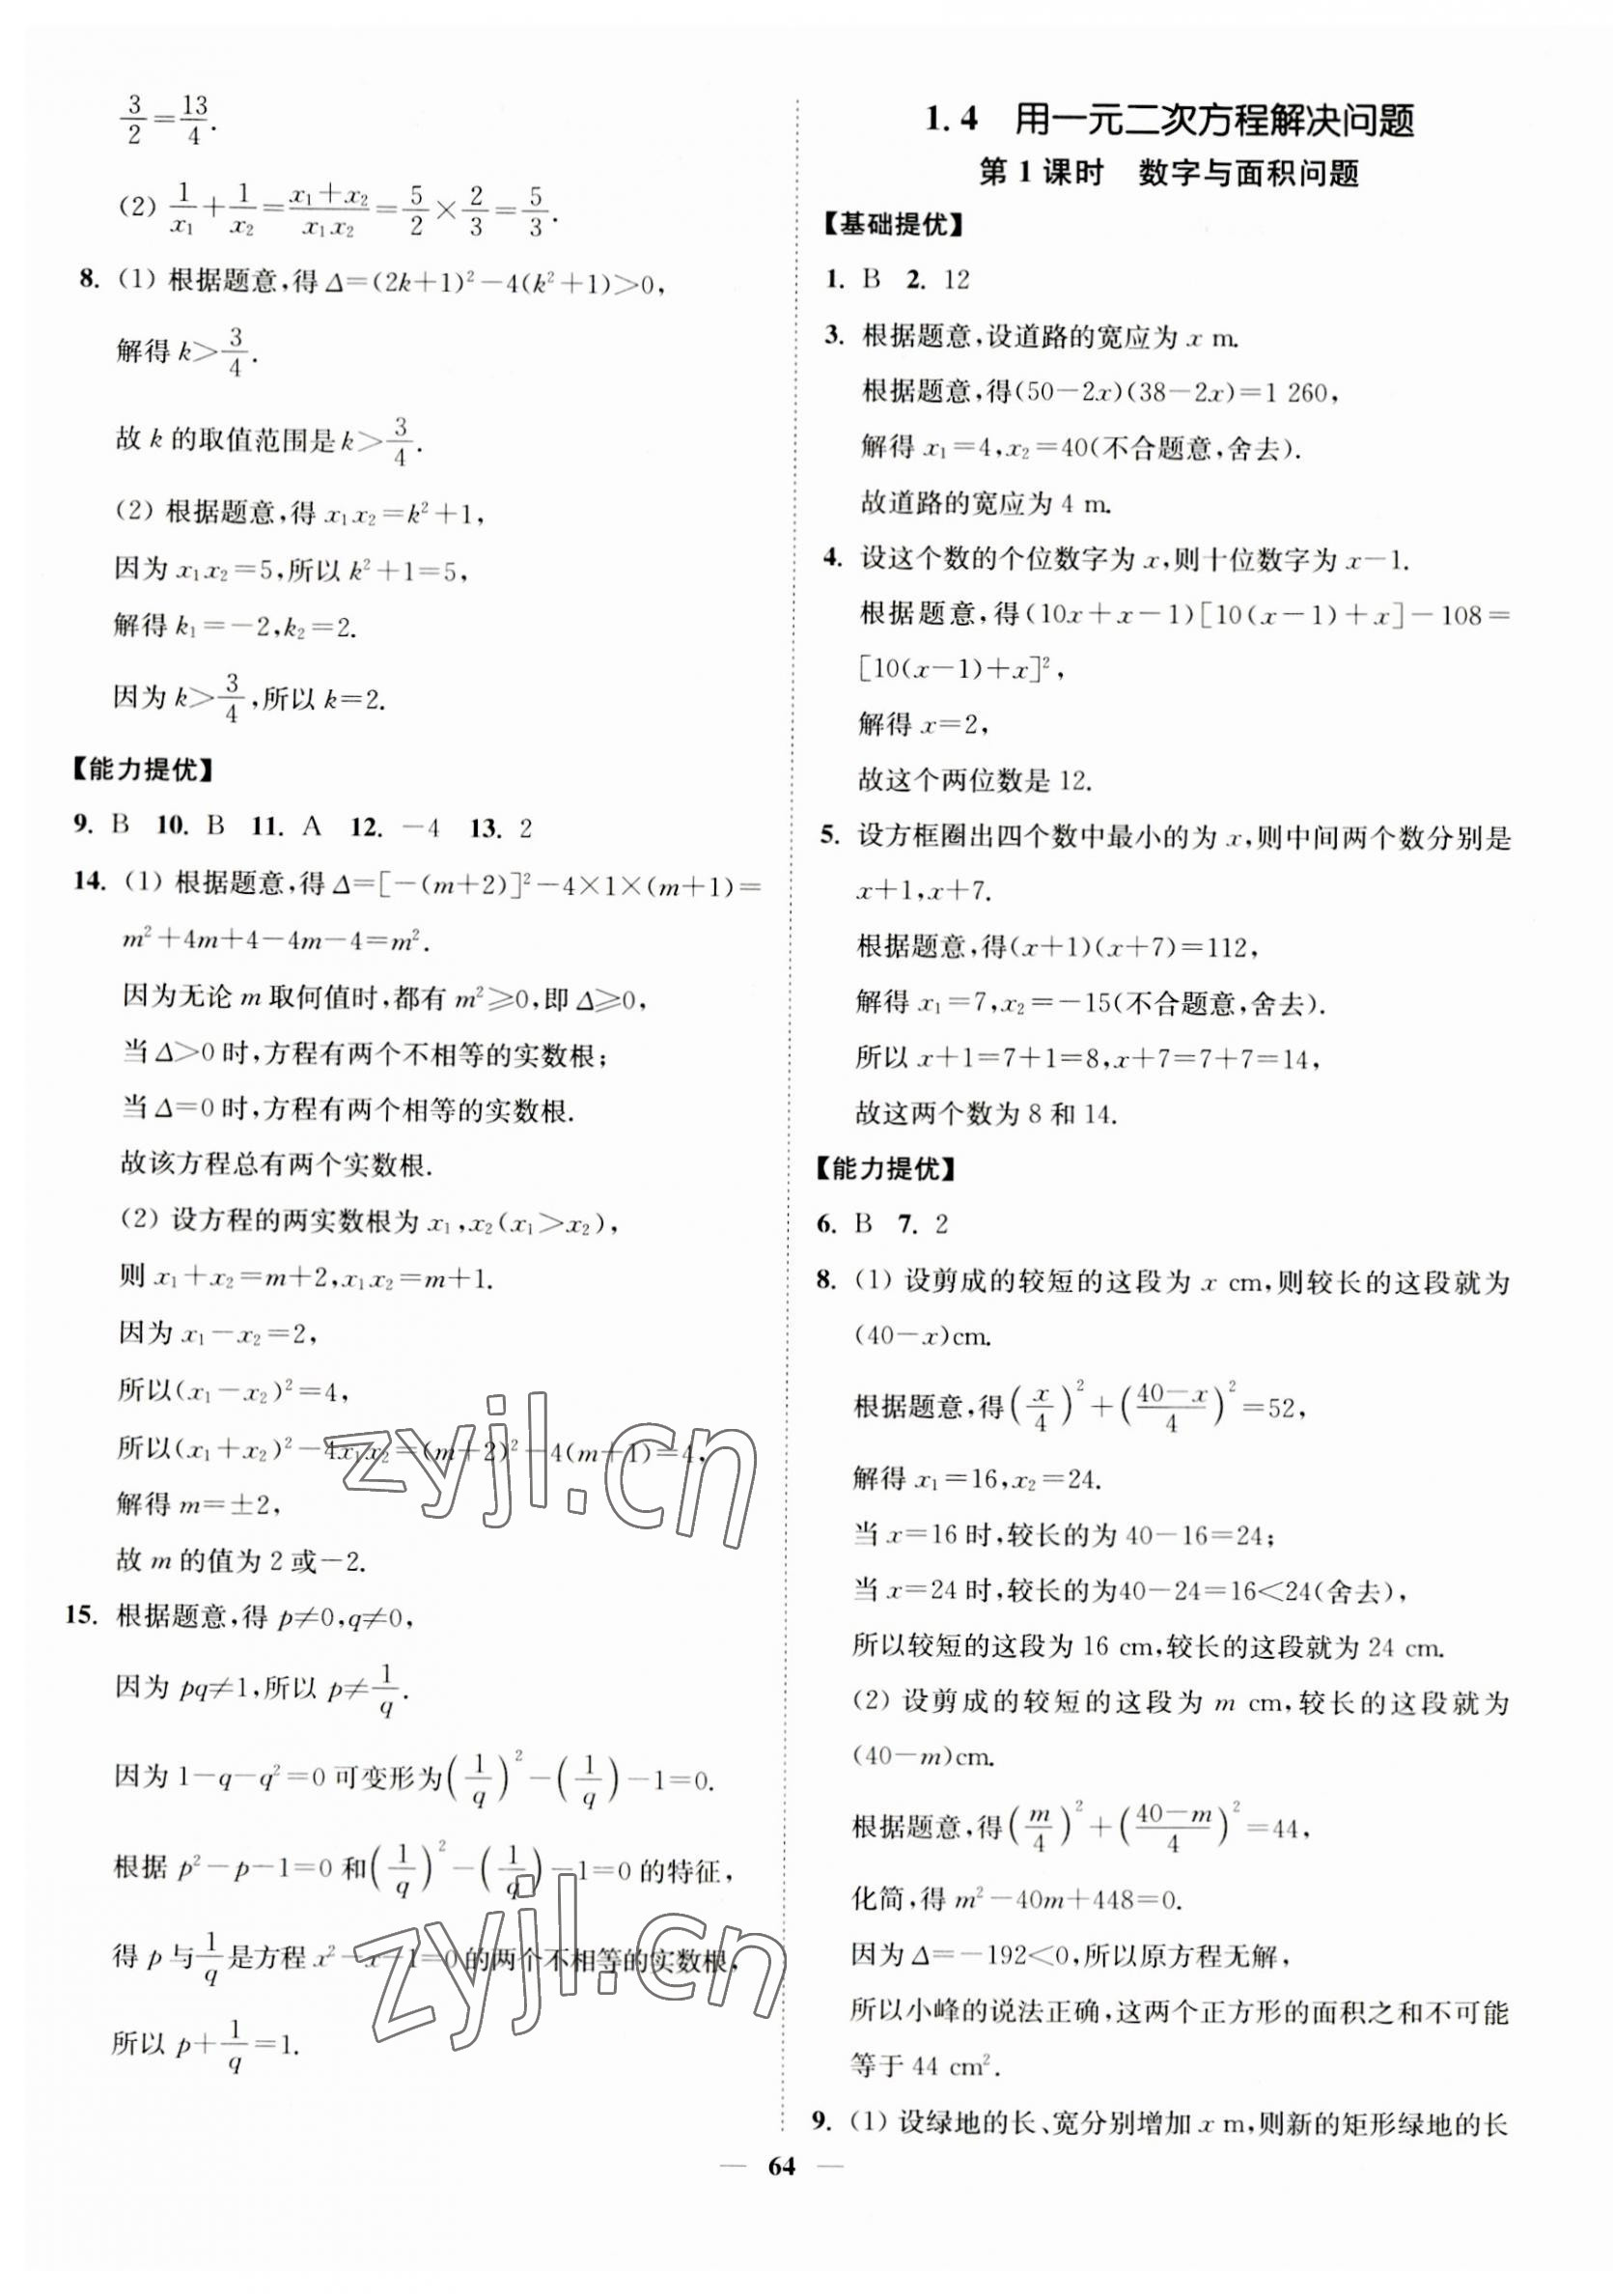 3/2=13/4.
(2) 1/x₁+1/x₂=(x₁+x₂)/(x₁x₂)=5/2×2/3=5/3.
8. (1) 根据题意,得 Δ=(2k+1)²-4(k²+1)>0,
解得 k>3/4.
故 k 的取值范围是 k>3/4.
(2) 根据题意,得 x₁x₂=k²+1,
因为 x₁x₂=5,所以 k²+1=5,
解得 k₁=-2,k₂=2.
因为 k>3/4,所以 k=2.
【能力提优】
9. B 10. B 11. A 12. -4 13. 2
14. (1) 根据题意,得 Δ=[-(m+2)]²-4×1×(m+1)=
m²+4m+4-4m-4=m².
因为无论 m 取何值时,都有 m²≥0,即 Δ≥0,
当 Δ>0 时,方程有两个不相等的实数根;
当 Δ=0 时,方程有两个相等的实数根.
故该方程总有两个实数根.
(2) 设方程的两实数根为 x₁,x₂(x₁>x₂),
则 x₁+x₂=m+2,x₁x₂=m+1.
因为 x₁-x₂=2,
所以(x₁-x₂)²=4,
所以(x₁+x₂)²-4x₁x₂=(m+2)²-4(m+1)=4,
解得 m=±2,
故 m 的值为 2 或-2.
15. 根据题意,得 p≠0,q≠0,
因为 pq≠1,所以 p≠1/q.
因为 1-q-q²=0 可变形为(1/q)²-(1/q)-1=0.
根据 p²-p-1=0 和(1/q)²-(1/q)-1=0 的特征,
得 p 与1/q是方程 x²-x-1=0 的两个不相等的实数根,
所以 p+1/q=1.
1.4 用一元二次方程解决问题
第 1 课时 数字与面积问题
【基础提优】
1. B 2. 12
3. 根据题意,设道路的宽应为 x m.
根据题意,得(50-2x)(38-2x)=1 260,
解得 x₁=4,x₂=40(不合题意,舍去).
故道路的宽应为 4 m.
4. 设这个数的个位数字为 x,则十位数字为 x-1.
根据题意,得(10x+x-1)[10(x-1)+x]-108=
[10(x-1)+x]²,
解得 x=2,
故这个两位数是 12.
5. 设方框圈出四个数中最小的为 x,则中间两个数分别是
x+1,x+7.
根据题意,得(x+1)(x+7)=112,
解得 x₁=7,x₂=-15(不合题意,舍去).
所以 x+1=7+1=8,x+7=7+7=14,
故这两个数为 8 和 14.
【能力提优】
6. B 7. 2
8. (1) 设剪成的较短的这段为 x cm,则较长的这段就为
(40-x)cm.
根据题意,得(x/4)²+((40-x)/4)²=52,
解得 x₁=16,x₂=24.
当 x=16 时,较长的为 40-16=24;
当 x=24 时,较长的为40-24=16<24(舍去),
所以较短的这段为 16 cm,较长的这段就为 24 cm.
(2) 设剪成的较短的这段为 m cm,较长的这段就为
(40-m)cm.
根据题意,得(m/4)²+((40-m)/4)²=44,
化简,得 m²-40m+448=0.
因为 Δ=-192<0,所以原方程无解,
所以小峰的说法正确,这两个正方形的面积之和不可能
等于 44 cm².
9. (1) 设绿地的长、宽分别增加 x m,则新的矩形绿地的长
— 64 —
zyjl.cn
zyjl.cn